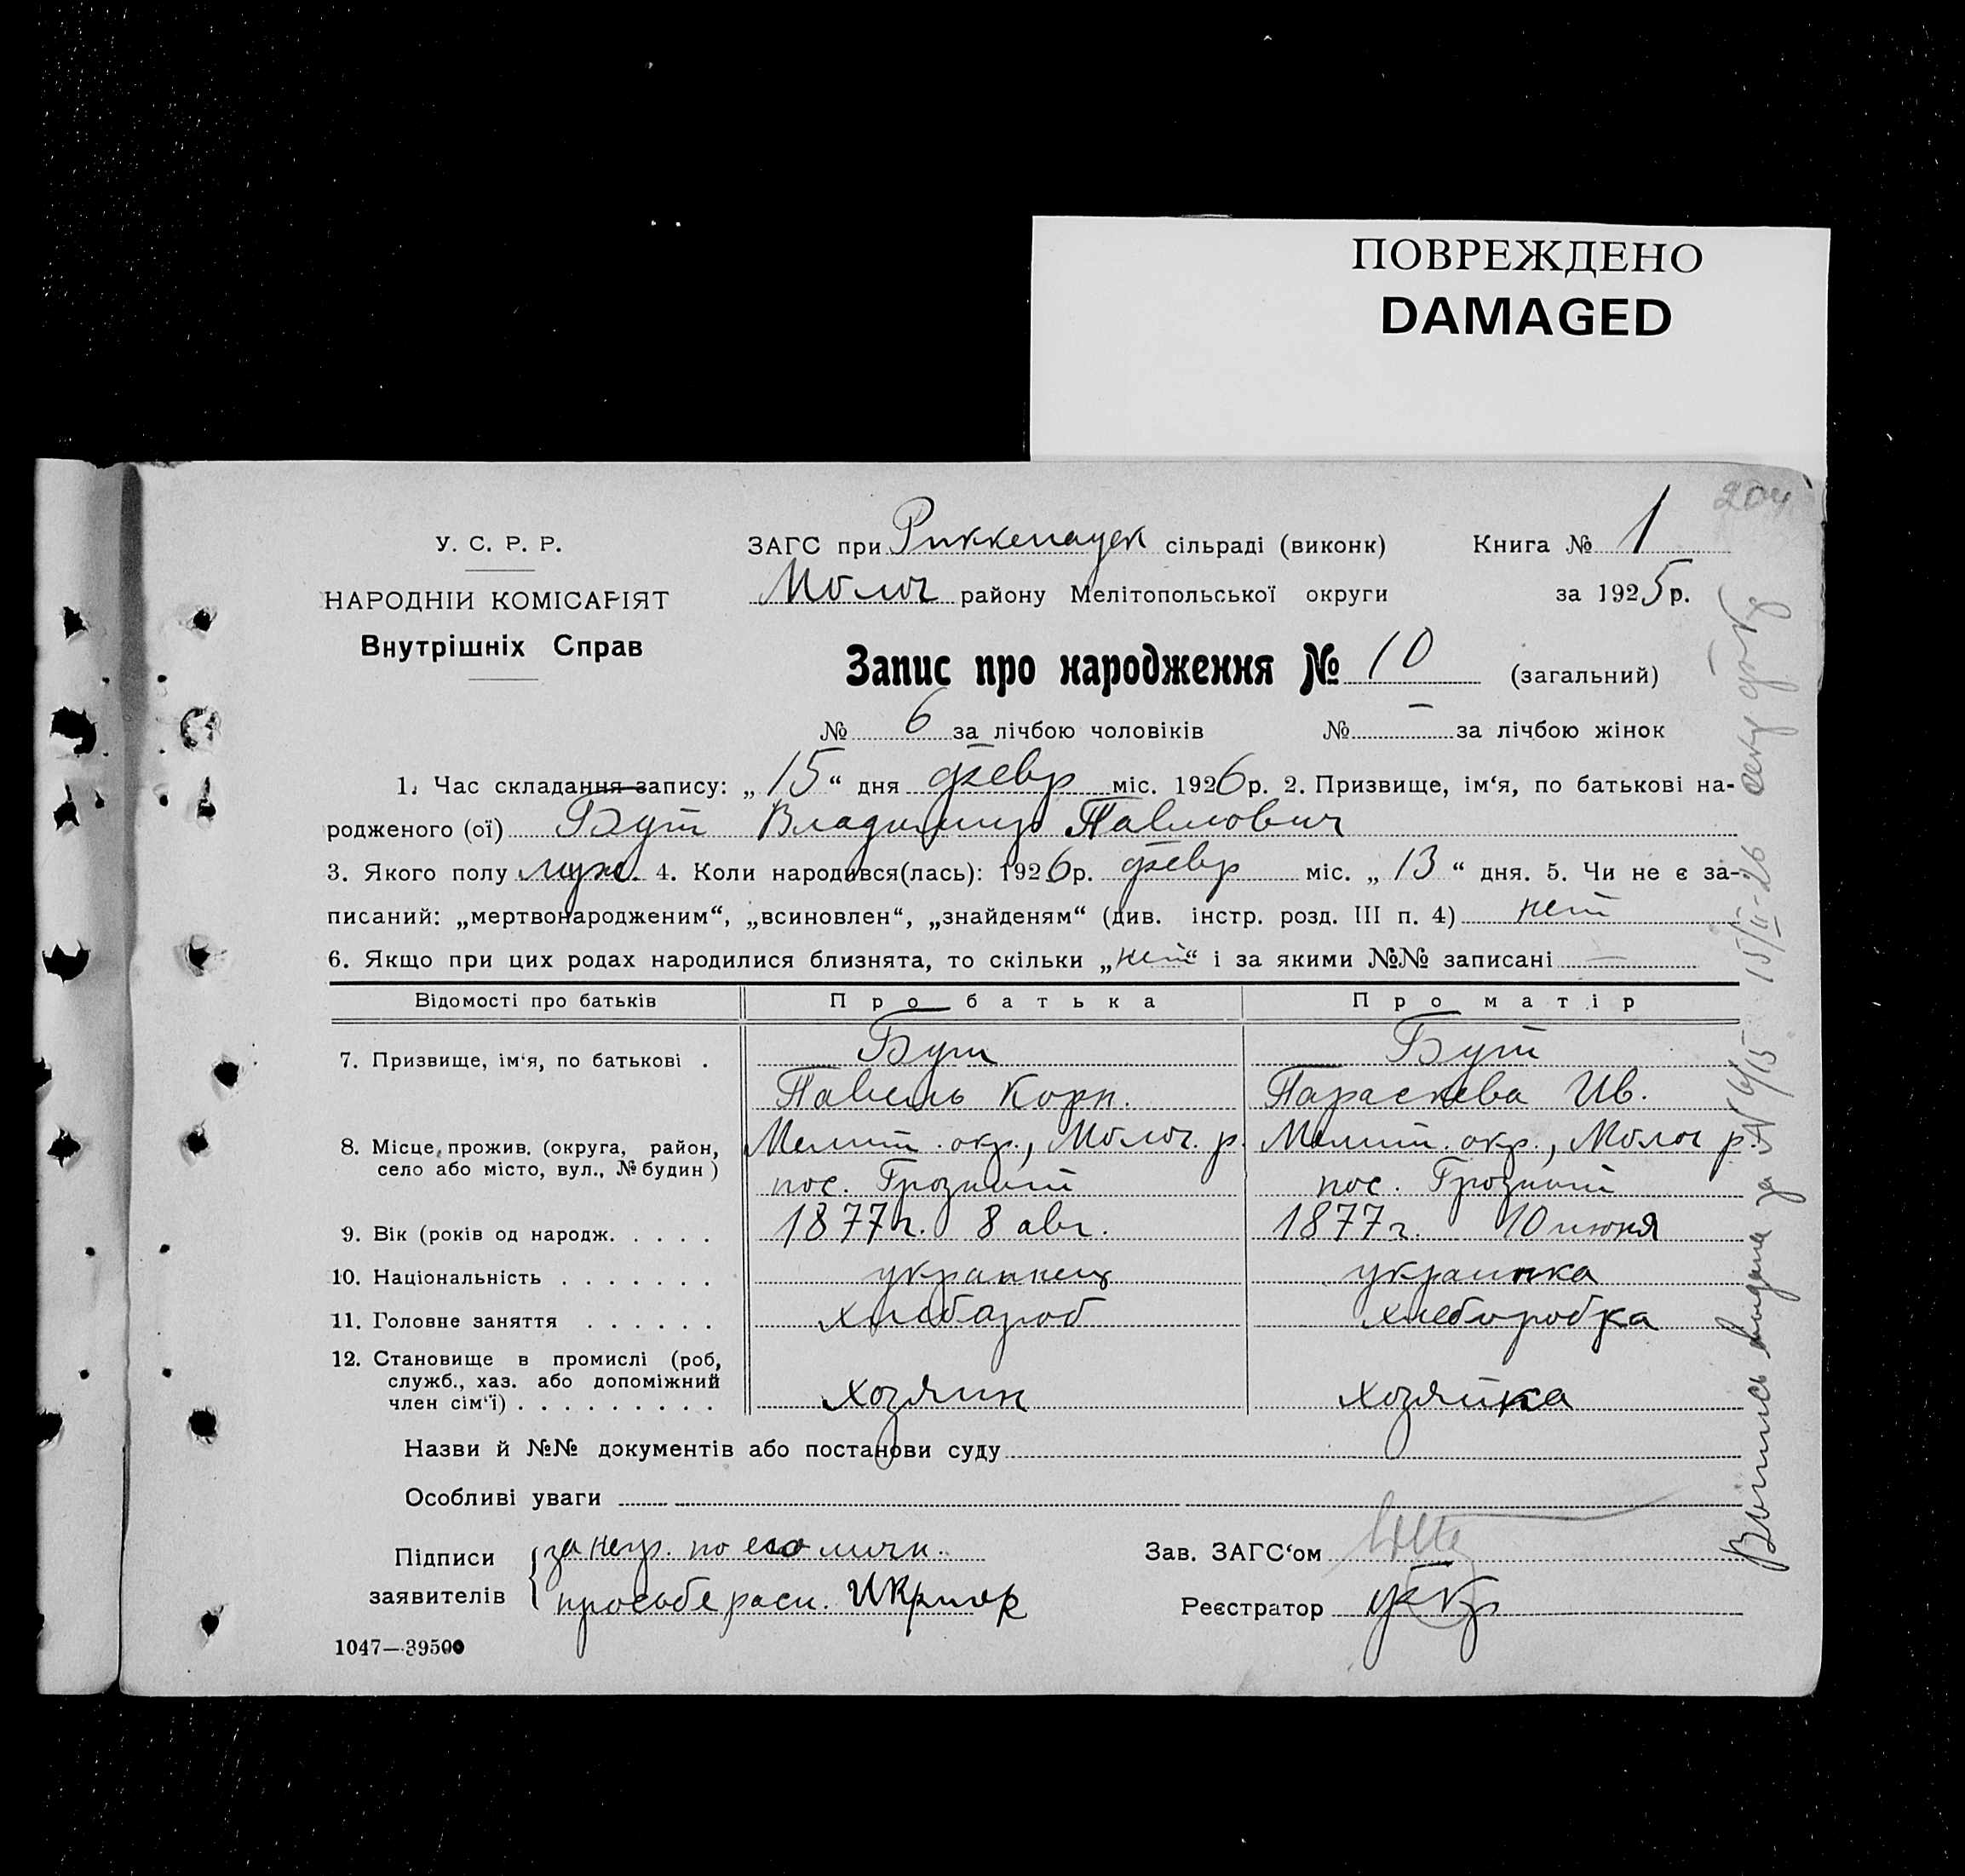 ПОВРЕЖДЕНО
DAMAGED
204
У. С. Р. Р.
НАРОДНІЙ КОМІСАРІЯТ
Внутрішніх Справ
ЗАГС при Риккенауск сільраді (виконк) Книга № 1
Молоч району Мелітопольської округи за 1925 р.
Запис про народження № 10 (загальний)
№ 6 за лічбою чоловіків № — за лічбою жінок
1. Час складання запису: „15“ дня февр міс. 1926 р. 2. Призвище, ім‘я, по батькові на-
родженого (ої) Бут Владимир Павлович
3. Якого полу муж. 4. Коли народився(лась): 1926 р. февр міс. „13“ дня. 5. Чи не є за-
писаний: „мертвонародженим“, „всиновлен“, „знайденям“ (див. інстр. розд. III п. 4) нет
6. Якщо при цих родах народилися близнята, то скільки „нет“ і за якими №№ записані —
Відомості про батьків Про батька Про матір
7. Призвище, ім‘я, по батькові . Бут Бут
Павель Корн. Параскева Ив.
8. Місце прожив. (округа, район, Мелит. окр., Молоч. р. Мелит. окр., Молоч р.
село або місто, вул., № будин) пос. Грозный пос. Грозный
9. Вік (років од народж. . . . . 1877 г. 8 авг. 1877 г. 10 июня
10. Національність . . . . . . . украинец украинка
11. Головне заняття . . . . . . хлебароб хлеборобка
12. Становище в промислі (роб,
служб., хаз. або допоміжний
член сім‘ї) . . . . . . . . . хозяин хозяйка
Назви й №№ документів або постанови суду
Особливі уваги
Підписи
заявителів
за негр. по его личн.
просьбе расп.
Зав. ЗАГС‘ом
Реєстратор
1047—39500
Выпись выдана за № 4/15 15/II-26